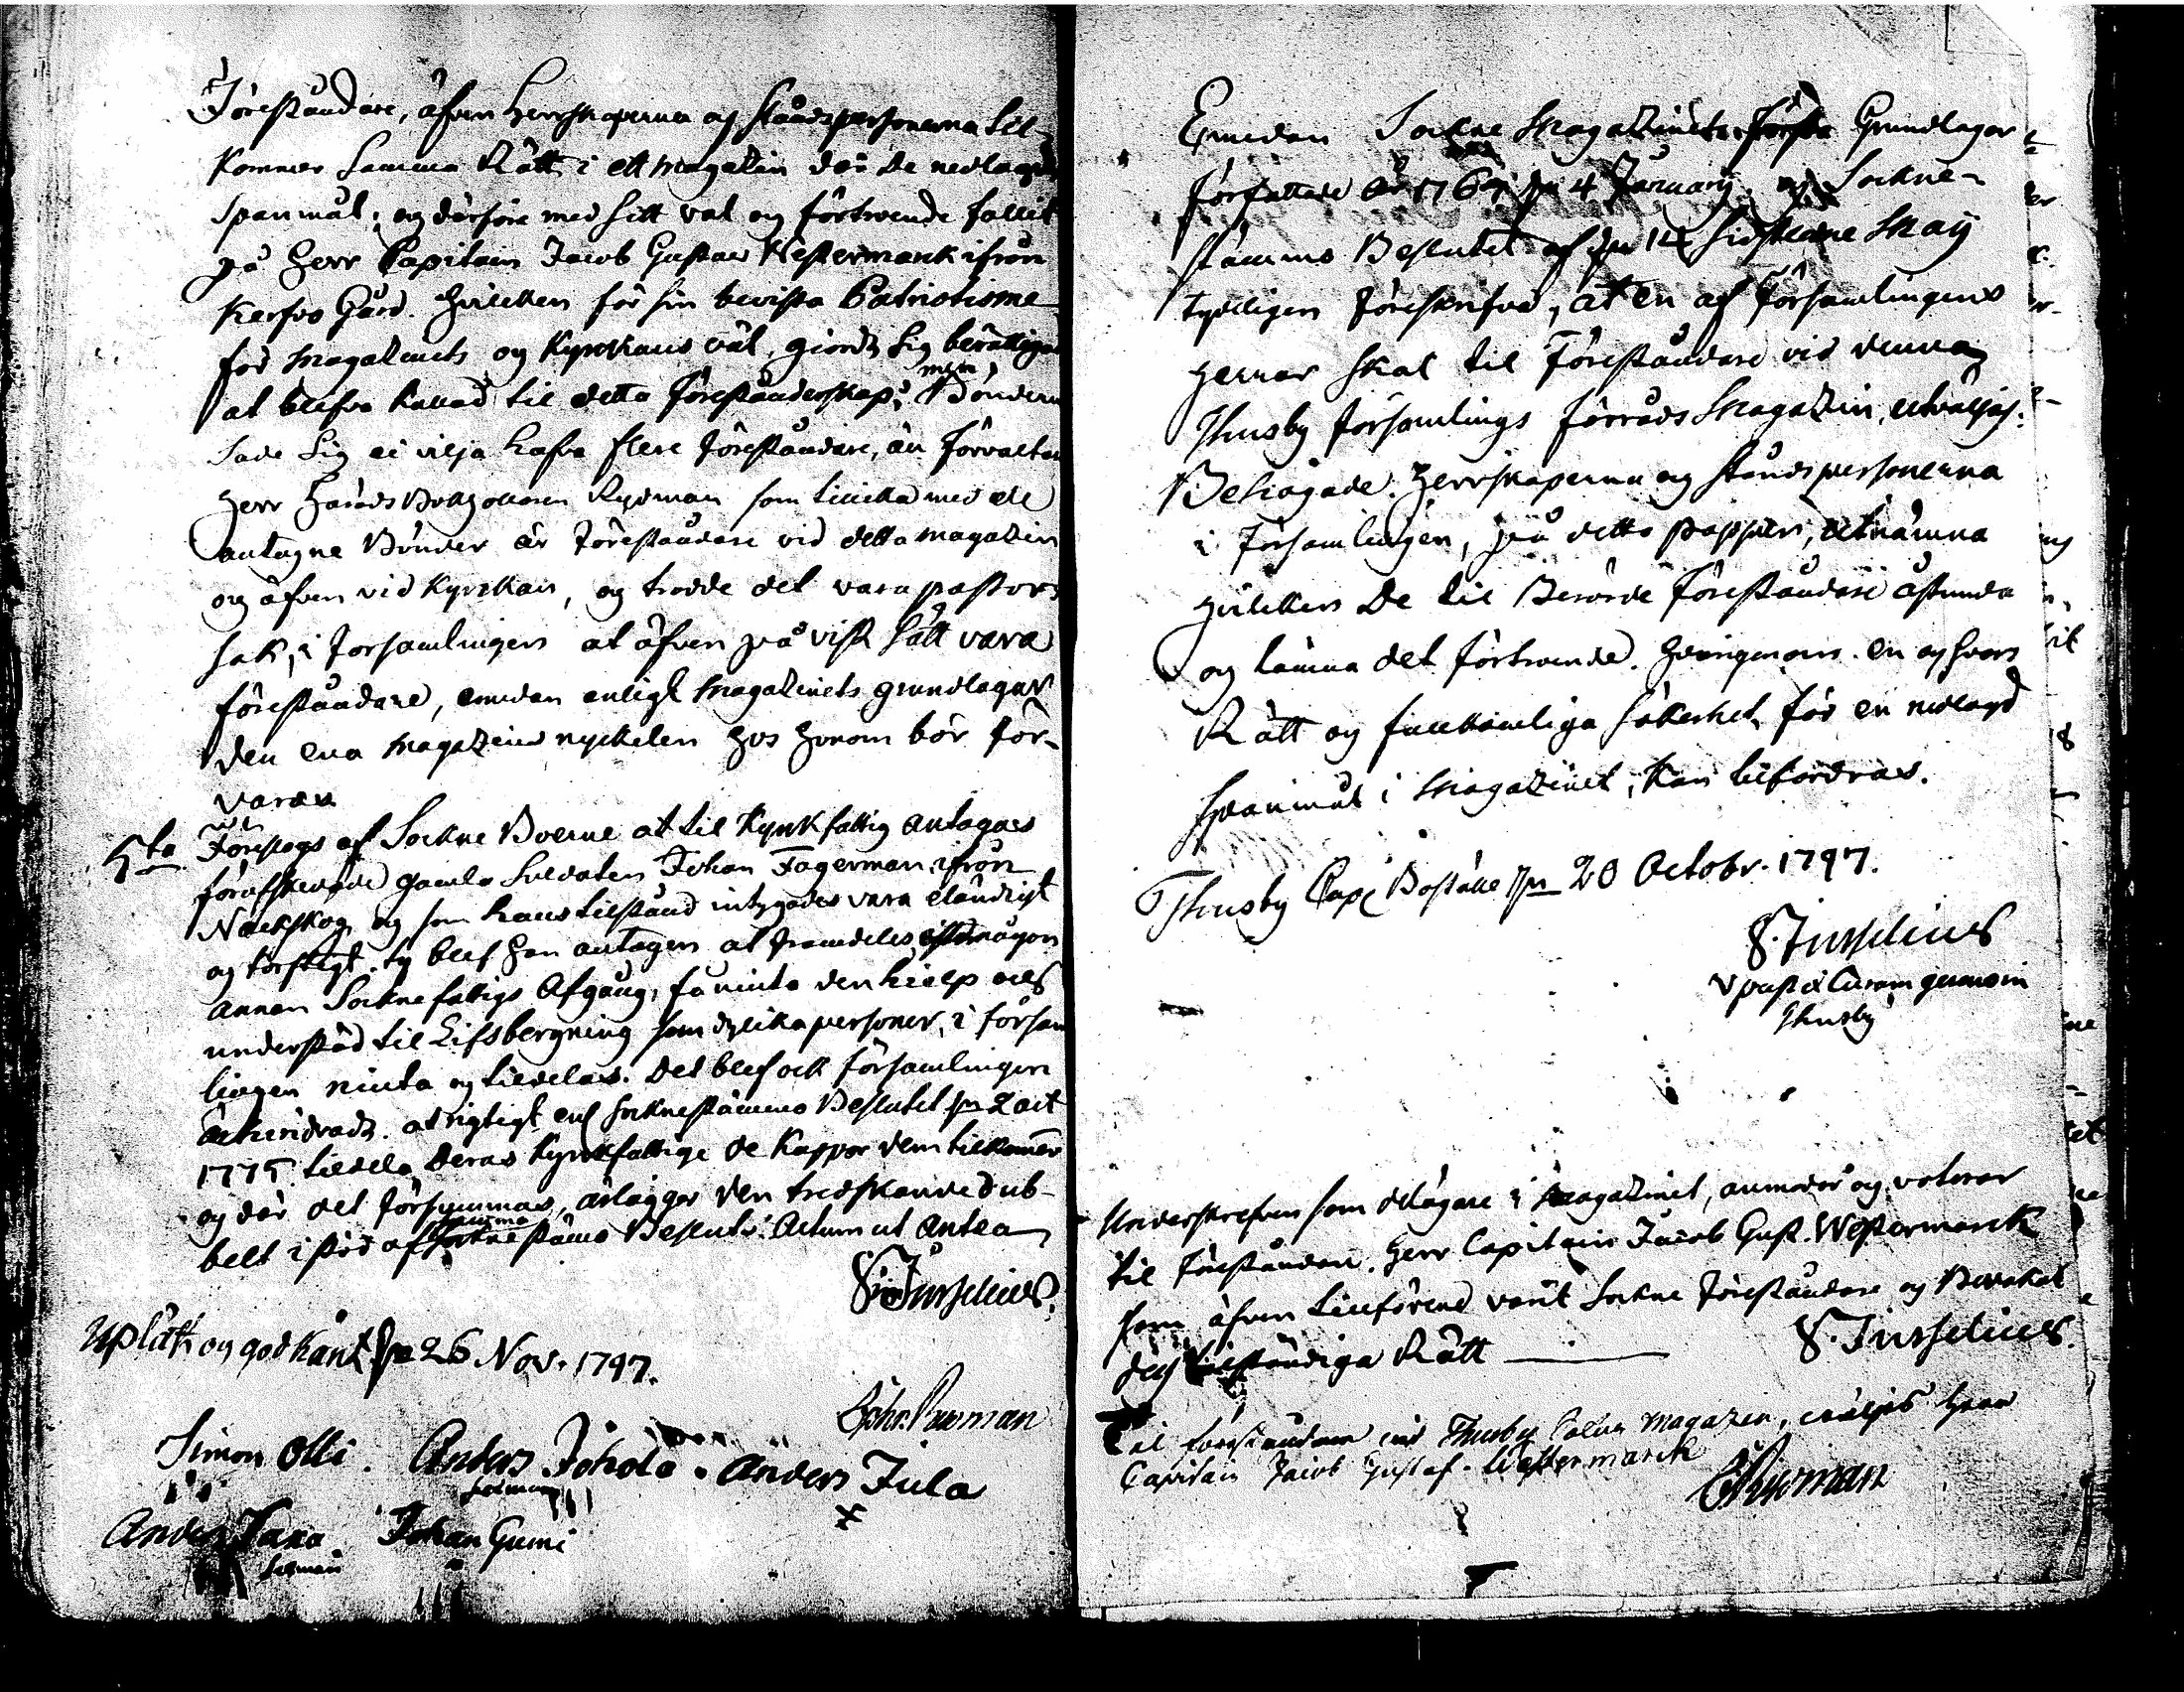 Föreståndare, äfven Herrskaperna og Ståndspersonerna til-
kommer samma Rätt i ett magazin där De nedlagdt
Spanmål; og därföre med sitt val og förtroende fallit
på Herr Capitain Jacob Gustav Westermarck ifrån
Kerfvo Gård. Hvilcken för sin bevista Patriotisme
för Magazinets og Kyrckans väl, giordt Sig berättigad
at blefva kallad til detta Föreståndarskap; men,
Bönderne
sade Sig ei vilja hafva flere Föreståndare, än Förvaltaren
Herr Härads Bokhollaren Rydman som tillika med de
antagne Bönder är Föreståndare vid detta magazin
og äfven vid Kyrckan, og trodde det vara pastors
sak, i Församlingen at äfven på vist sätt vara
föreståndare, emedan enligt Magazinets grundlagar
den ena Magazins nyckelen hos Honom bör för-
varas
5to Föreslogs af Sockne Boerne at til Kyrckfattig antagas
förafskedade gamla Soldaten Johan Fagerman ifrån
Näckskog, og som hans tilstånd intygades vara eländigt
og torftigt, ty blef Han antagen at framdeles, efter någon
annan Socknefattigs Afgång, få niuta den hielp och
understöd til Lifsbergning som dylika personer, i försam
lingen niuta og tildelas. Det blef ock församlingen
at rigtigt enl Socknestämmo Beslutet den 2 oct
1775 tildela Deras Kyrckfattige de Kappor dem tilkommer
og där det Försummas, ärlägger den tredskande dub-
belt i stöd af samma
Sockne stämo Beslut. Actum ut Antea
S. Jusselius.
Uplåst og godkänt den 26 Nov. 1797.
Simon Olli. Anders Johola. Anders Jula
Johan Gumi
Emedan Sockne Magazinets första Grundlagar
författade År 1767 den 4 January, og Sockne-
stämmo Beslutet af den 14 sidstledne May
tydeligen föreskrifva, at en af Församlingens
Herrar skal til Föreståndare vid denna
Thusby Församlings Förråds Magazin, utväljas;
Behagade Herrskaperna og Ståndspersonerna
i Församlingen, på detta papper, utnämna
Hvilcken De til Berörde Föreståndare åstunda
og lämna det förtroende, hvarigenom en og hvars
Rätt og fullkomliga säkerhet, för en nedlagd
Spanmål i Magazinet, kan tilfordras.
Thusby Cap. Boställe den 20 Octobr. 1797.
S. Jusselius
Thusby
Underskrefven som delägare i Magazinet, anmodar og voterar
til Föreståndare, Herr Capitain Jacob Gust. Westermarck
som äfven tilförene varit Sockne Föreståndare og Bevakat
des Rätt
S. Jusselius.
Til föreståndare vid Thusby Sokne Magazin, väljes Herr
Capitain Jacob Gustaf Westermarck